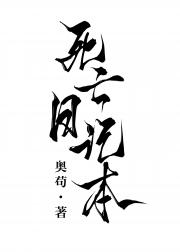 死亡日记本
奥荀·著